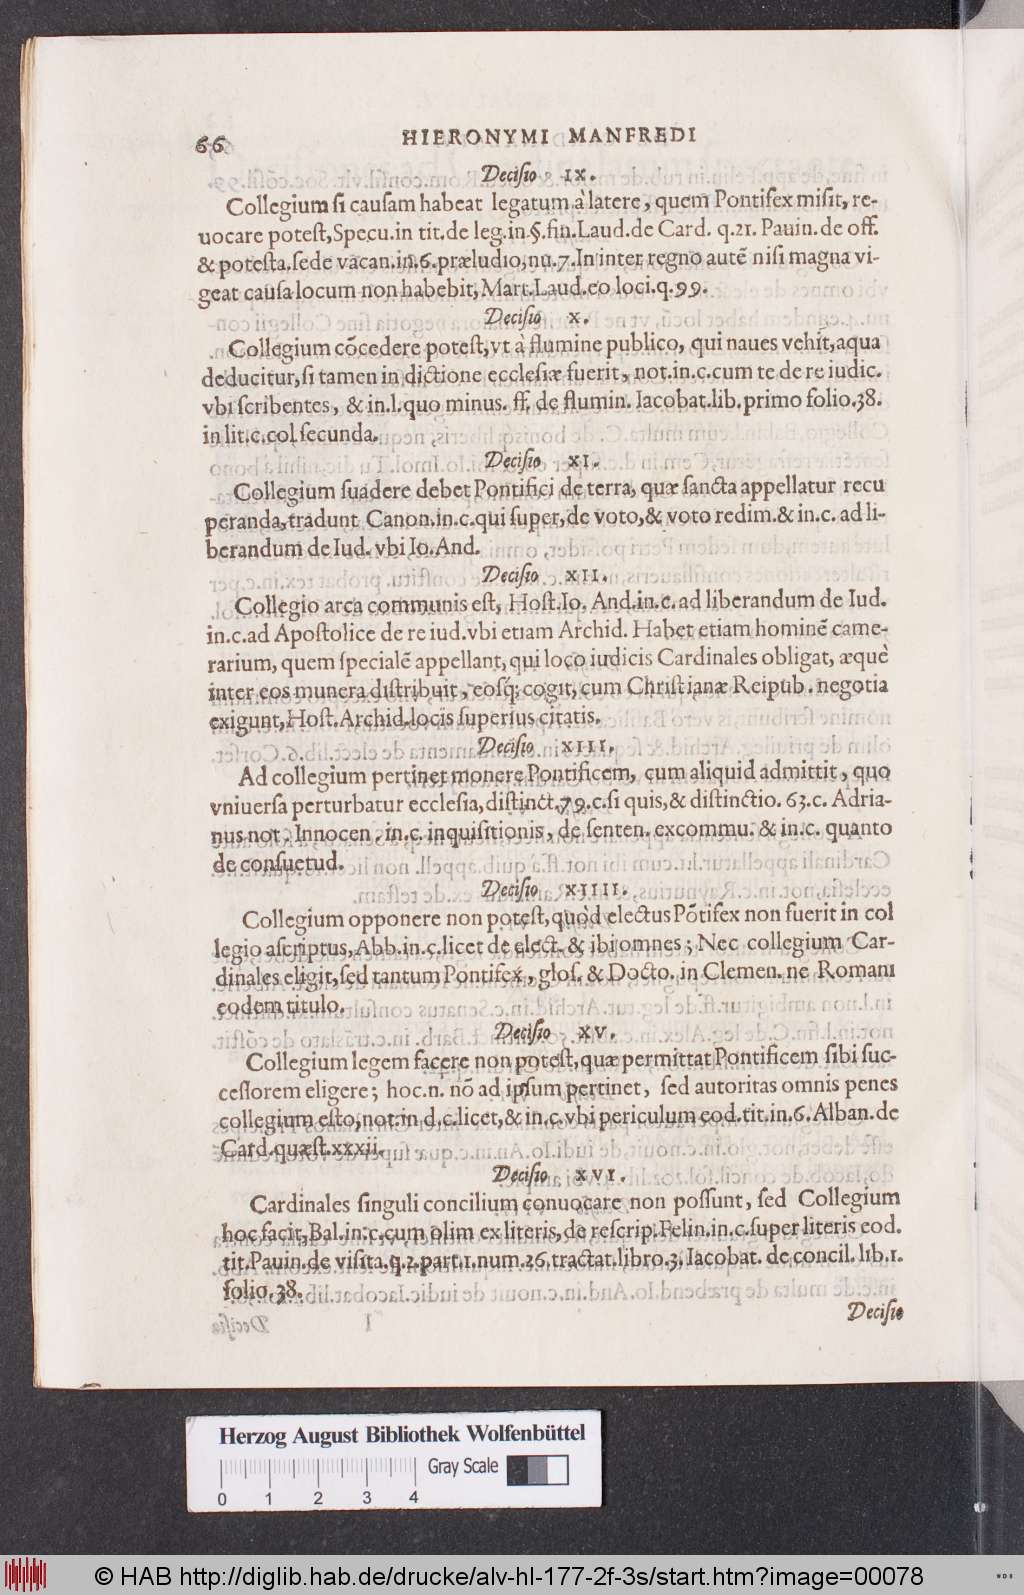 66 HIERONYMI MANFREDI
Decisio IX.
Collegium si causam habeat legatum à latere, quem Pontifex misit, re-
uocare potest, Specu.in tit.de leg.in.§.fin.Laud.de Card. q.21. Pauin.de off.
& potesta.sede vacan.in.6.præludio,nu.7.In inter regno autē nisi magna vi-
geat causa locum non habebit, Mart.Laud.eo loci.q.99.
Decisio X.
Collegium cōcedere potest,vt à flumine publico, qui naues vehit,aqua
deducitur,si tamen in dictione ecclesiæ fuerit, not.in.c.cum te de re iudic.
vbi scribentes, & in.l.quo minus. ff. de flumin. Iacobat.lib.primo folio.38.
in lit.c.col secunda.
Decisio XI.
Collegium suadere debet Pontifici de terra, quæ sancta appellatur recu
peranda,tradunt Canon.in.c.qui super,de voto,& voto redim.& in.c. ad li-
berandum de Iud. vbi Io.And.
Decisio XII.
Collegio arca communis est, Host.Io. And.in.c.ad liberandum de Iud.
in.c.ad Apostolice de re iud.vbi etiam Archid. Habet etiam hominē came-
rarium, quem specialē appellant, qui loco iudicis Cardinales obligat, æquè
inter eos munera distribuit, eosq́; cogit, cum Christianæ Reipub. negotia
exigunt, Host.Archid.locis superius citatis.
Decisio XIII.
Ad collegium pertinet monere Pontificem, cum aliquid admittit, quo
vniuersa perturbatur ecclesia, distinct.79.c.si quis,& distinctio. 63.c. Adria-
nus not. Innocen. in.c. inquisitionis, de senten. excommu. & in.c. quanto
de consuetud.
Decisio XIIII.
Collegium opponere non potest, quòd electus Pōtifex non fuerit in col
legio ascriptus, Abb.in.c.licet de elect. & ibi omnes; Nec collegium Car-
dinales eligit, sed tantum Pontifex, glos. & Docto. in Clemen. ne Romani
eodem titulo.
Decisio XV.
Collegium legem facere non potest, quæ permittat Pontificem sibi suc-
cessorem eligere; hoc.n. nō ad ipsum pertinet, sed autoritas omnis penes
collegium esto, not.in d.c.licet,& in.c.vbi periculum eod.tit.in.6. Alban.de
Card.quæst.xxxii.
Decisio XVI.
Cardinales singuli concilium conuocare non possunt, sed Collegium
hoc facit, Bal.in.c.cum olim ex literis, de rescrip.Felin.in.c.super literis eod.
tit.Pauin.de visita.q.2.part.1.num.26.tractat.libro.3. Iacobat. de concil. lib.1.
folio.38.
Decisio
Herzog August Bibliothek Wolfenbüttel
Gray Scale
0 1 2 3 4
© HAB http://diglib.hab.de/drucke/alv-hl-177-2f-3s/start.htm?image=00078